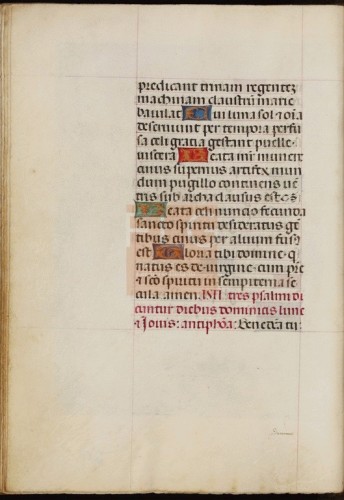 predicant trinam regentez
machinam claustrū marie
baiulat Cui luna sol ⁊ oīa
deserviunt per tempora perfu
sa celi gratia gestant puelle
viscera Beata mr̄ munere
cuius supernus artifex mun
dum pugillo continens uē
tris sub archa clausus est
Beata celi nuncio fecunda
sancto spiritu desideratus gē
tibus cuius per alvum fusꝰ
est Gloria tibi domine q̄
natus es de virgine cum pr̄e
⁊ scō spiritu in sempiterna se
cula amen. Isti tres psalmi di
cuntur diebus dominicis lune
⁊ Iovis: antiphōa: Benedcā tu